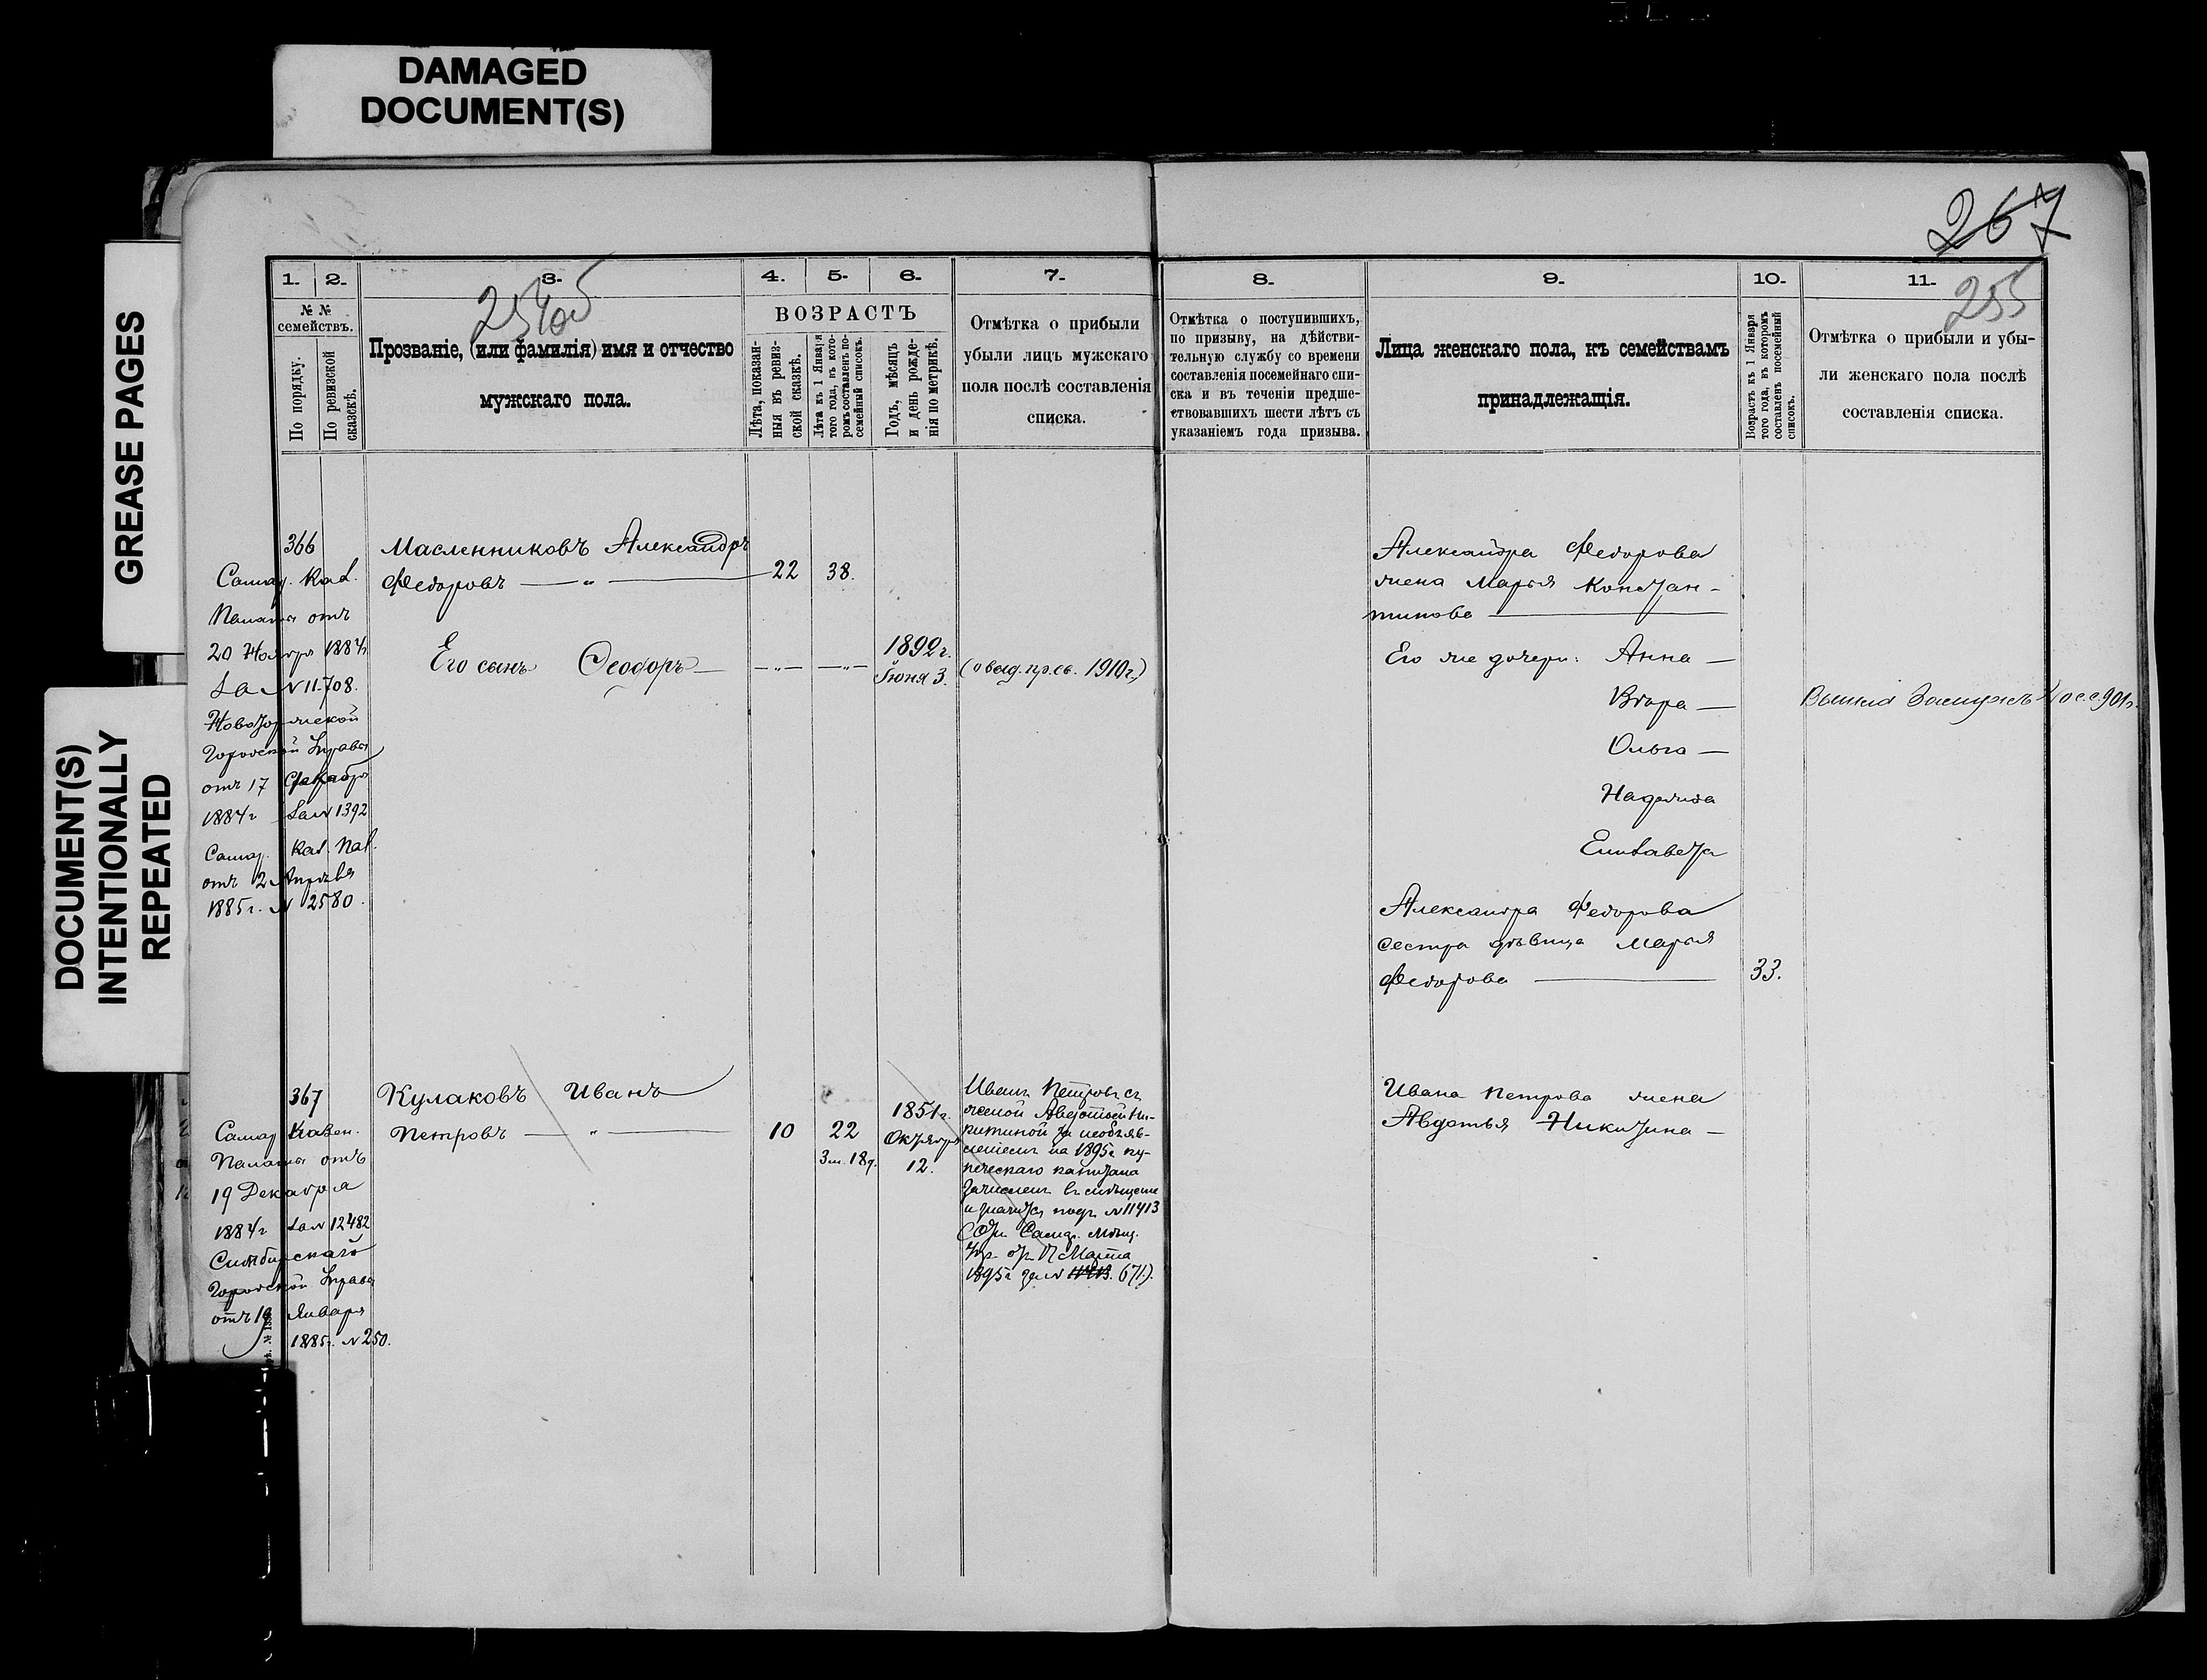 DAMAGED
DOCUMENT(S)
GREASE PAGES
DOCUMENT(S)
INTENTIONALLY
REPEATED
267
1. 2. 3. 4. 5. 6. 7. 8. 9. 10. 11.
255
№ №
семействъ.
По порядку.
По ревизской
сказскѣ.
Прозваніе, (или фамилія) имя и отчество
мужскаго пола.
ВОЗРАСТЪ
Лѣта, показан-
ныя въ ревиз-
ской сказкѣ.
Лѣта къ 1 Января
того года, въ кото-
ромъ составленъ по-
семейный списокъ.
Годъ, мѣсяцъ
и день рожде-
нія по метрикѣ.
Отмѣтка о прибыли
убыли лицъ мужскаго
пола послѣ составленія
списка.
Отмѣтка о поступившихъ,
по призыву, на дѣйстви-
тельную службу со времени
составленія посемейнаго спи-
ска и въ теченіи предше-
ствовавшихъ шести лѣтъ съ
указаніемъ года призыва.
Лица женскаго пола, къ семействамъ
принадлежащія.
Возрастъ къ 1 Января
того года, въ которомъ
составленъ посемейный
списокъ.
Отмѣтка о прибыли и убы-
ли женскаго пола послѣ
составленія списка.
366
Самар. Каз.
Палаты отъ
20 Ноября 1884г
за N 11.708.
Городской Управы
отъ 17 Декабря
1884г за N 1392
Самар. Каз. Пал.
отъ 2 Апрѣля
1885г. N 2580.
Масленниковъ Александръ
Федоровъ — " — 22 38.
Его сынъ Ѳеодоръ —
— " — — " —
1892г.
Іюня 3.
(о выд. пр. св. 1910г.)
Александра Федорова
жена Марья Констан-
тинова —
Его же дочери: Анна —
Вѣра —
Вышла замужъ
Ольга —
Надежда
Елизавета
Александра Федорова
сестра дѣвица Марья
Федорова — 33.
367
Самар Казен.
Палаты отъ
19 Декабря
1884г за N 12482
Симбирскаго
Городской Управы
отъ 19 Января
1885г. N 250.
Кулаковъ Иванъ
Петровъ — " — 10 22
3 м. 18 д.
1851г.
Октября
12.
Иванъ Петровъ съ
женой Авдотьей Ни-
китиной за необъяв-
леніемъ на 1895г ку-
печескаго капитала
зачисленъ въ мѣщане
и значится подъ N 11413
(От. Самар. Мѣщ.
Упр. от 17 Марта
1895г за N 11413. 671).
Ивана Петрова жена
Авдотья Никитина —